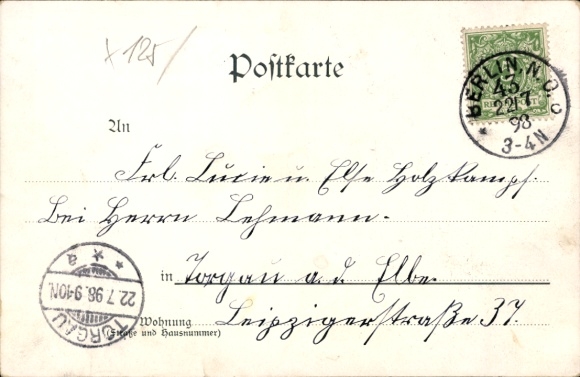 x 125/
Postkarte
BERLIN. N.O.
43
c
22/7
98
3-4N
An
Frl. Lucie u. Else Holzkampf.
Bei Herrn Lehmann.
in Torgau a. d. Elbe.
Wohnung Leipzigerstraße 37.
(Straße und Hausnummer)
TORGAU
22.7.98.9-10N.
a